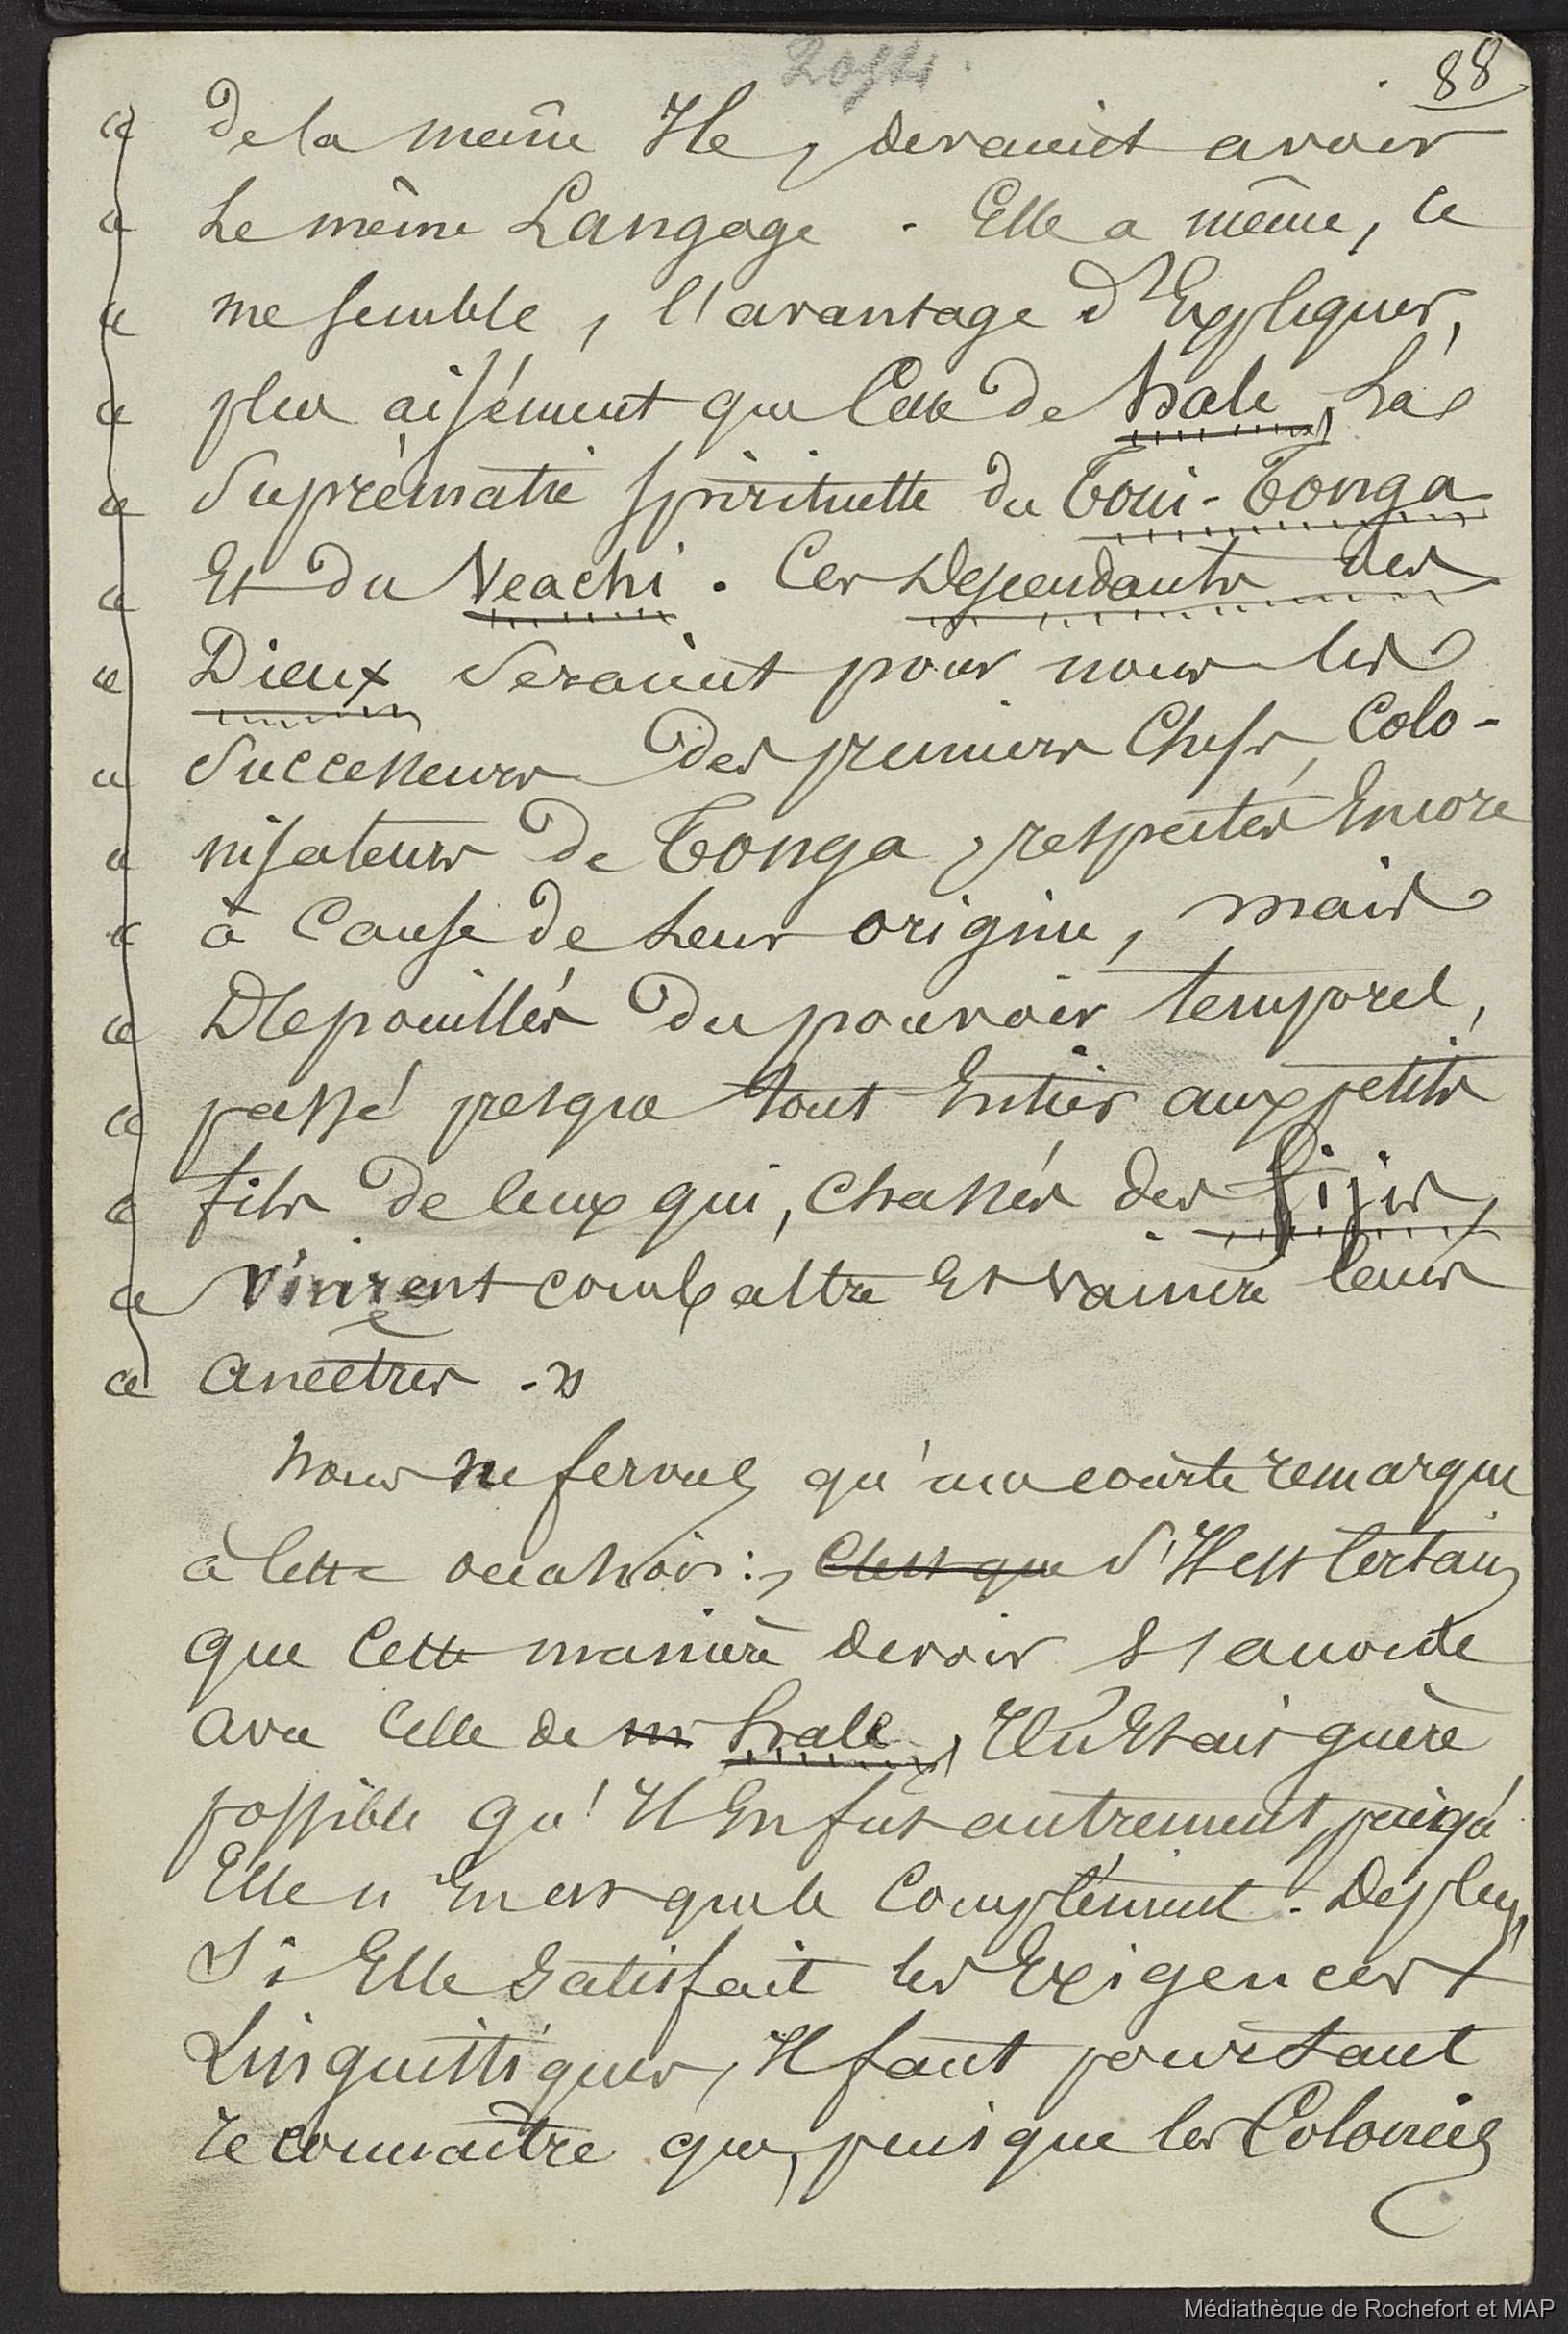 88
« de la même Ile, devaient avoir
« Le même Langage. Elle a même, ce
« me semble, l'avantage d'Expliquer,
« plus aisément que Celle de Hale, La
« Suprèmatie spirituelle du Toui-Tonga
« Et du Veachi. Ces Descendants des
« Dieux Seraient pour nous les
« Successeurs des premiers Chefs, Colo-
« nisateurs de Tonga, respectés Encore
« à Cause de Leur origine, mais
« Dépouillés du pouvoir temporel,
« passé presque tout Entier aux petits
« fils de Ceux qui, chassés des Fijis,
« vinrent combattre Et vaincre leurs
« ancêtres. »
Nous ne ferons qu'une courte remarque
à Cette occasion: C'est que S'Il est Certain
que Cette manière de voir S'accorde
avec Celle de M Hale, Il n'Etait guère
possible qu'Il En fut autrement, puisqu'
Elle n'En est que le Complément. De plus,
Si Elle Satisfait les Exigences
Linguistiques, Il faut pourtant
reconnaître que, puisque les Colonies
Médiathèque de Rochefort et MAP